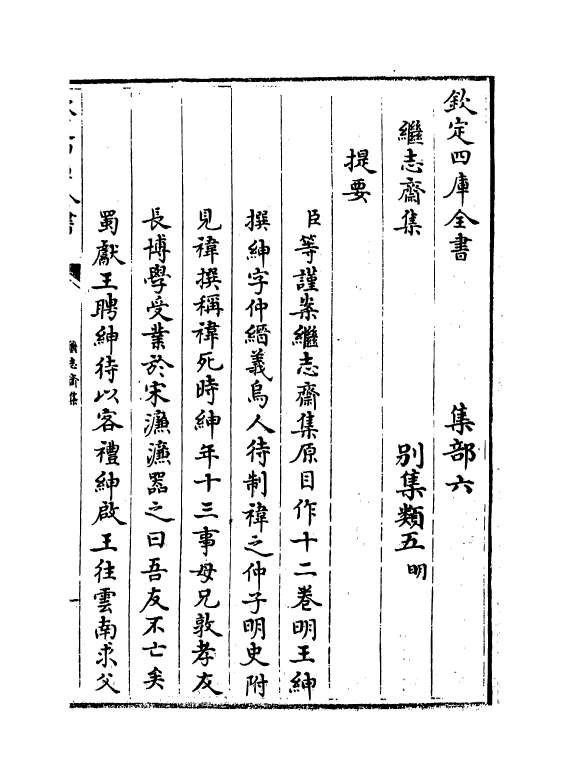 欽定四庫全書 集部六
繼志齋集 别集類五明
提要
臣等謹案繼志齋集原目作十二卷明王紳
撰紳字仲縉義烏人待制禕之仲子明史附
見禕撰稱禕死時紳年十三事母兄敦孝友
長博學受業於宋濂濂器之曰吾友不亡矣
蜀獻王聘紳待以客禮紳啟王往雲南求父
繼志齋集
一